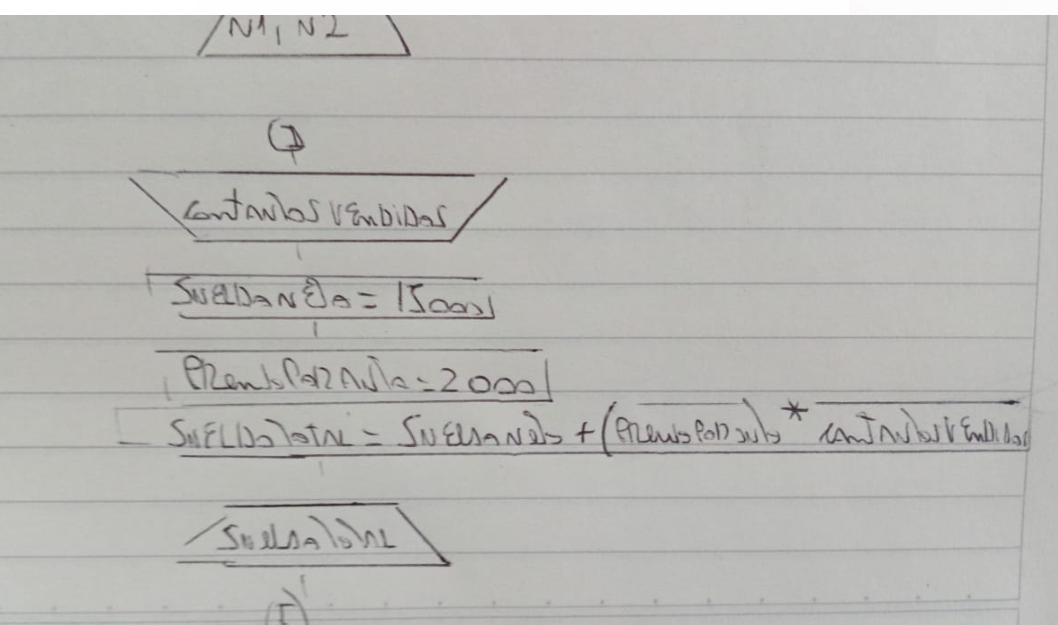 N1, N2
I
CantAutosVendidos
SueldoNeto = 15000
PremioPorAuto = 2000
SueldoTotal = SueldoNeto + (PremioPorAuto * CantAutosVendidos
SueldoTotal
F